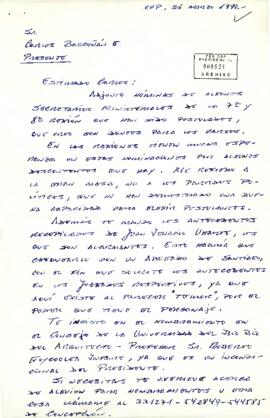 CCP, 26 MARZO 1990.-
SR.
CARLOS BASCUÑÁN E.
PRESENTE
PERIODO
PRESIDENCIAL
ARCHIVO
ESTIMADO CARLOS:
ADJUNTO NÓMINAS DE ALGUNOS
SECRETARIOS MINISTERIALES DE LA 7ª Y
8ª REGIÓN QUE HAN SIDO POSTULADOS,
QUE CREO SON IDÓNEOS PARA LOS CARGOS.
EN LAS REGIONES TIENEN MUCHA ESPE-
RANZA EN ESTAS NOMINACIONES POR ALGUNOS
DESCONTENTOS QUE HAY. ME REFIERO A
LA GRAN MASA, NO A LOS PARTIDOS PO-
LÍTICOS, QUE NI HAN DEMOSTRADO UNA BUE-
NA CAPACIDAD PARA ELEGIR POSTULANTES.
ADEMÁS TE MANDO LOS ANTECEDENTES
RECOPILADOS DE JUAN
QUE SON ALARMANTES. ESTO HABRÍA QUE
CHEQUEARLO CON UN ABOGADO DE SANTIAGO,
CON EL FIN QUE SOLICITE LOS ANTECEDENTES
EN LOS JUZGADOS RESPECTIVOS, YA QUE
AQUÍ EXISTE AL PARECER "TONGO", POR EL
PODER QUE TIENE EL PERSONAJE.
TE INSISTO EN EL NOMBRAMIENTO EN
EL CONSEJO DE LA UNIVERSIDAD DEL BÍO BÍO
DEL ARQUITECTO - PROFESOR SR. ROBERTO
GOYCOOLEA INFANTE, YA QUE ES UN INCONDI-
CIONAL DEL PRESIDENTE.
SI NECESITAS TE AVERIGÜE ACERCA
DE ALGUIEN PARA NOMBRAMIENTOS U OTRA
COSA LLÁMAME AL 331271 - 542849 - 544885
DE CONCEPCIÓN.